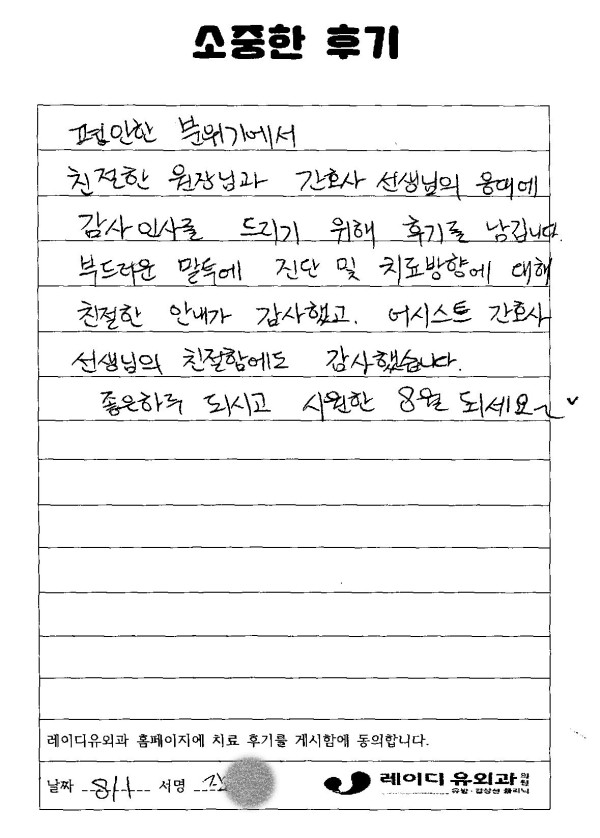 소중한 후기
편안한 분위기에서
친절한 원장님과 간호사 선생님의 응대에
감사 인사를 드리기 위해 후기를 남깁니다.
부드라운 말투에 진단 및 치료방향에 대해
친절한 안내가 감사했고, 어시스트 간호사
선생님의 친절함에도 감사했습니다.
좋은하루 되시고 시원한 8월 되세요~
레이디유외과 홈페이지에 치료 후기를 게시함에 동의합니다.
날짜 8/1 서명
레이디 유외과 의원
유방·갑상선 클리닉